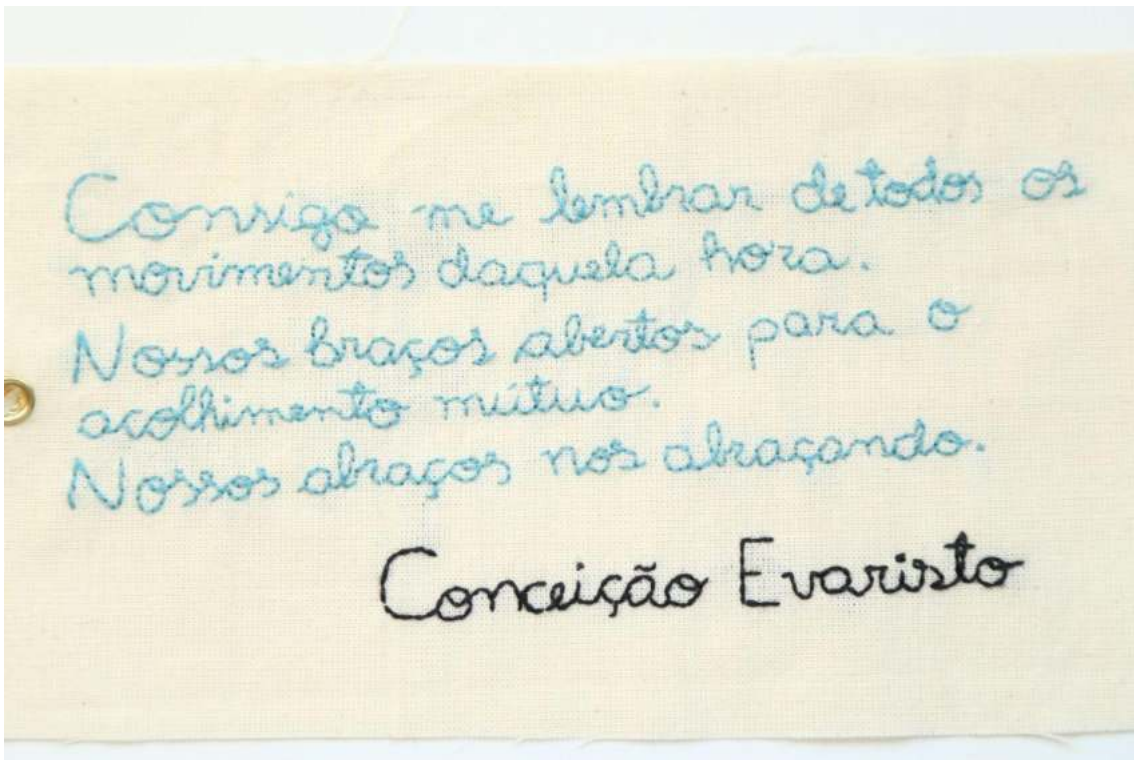 Consigo me lembrar de todos os
movimentos daquela hora.
Nossos braços abertos para o
acolhimento mútuo.
Nossos abraços nos abraçando.
Conceição Evaristo